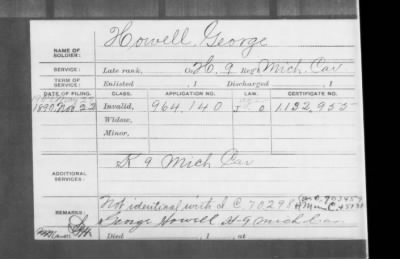 NAME OF SOLDIER: Howell, George
SERVICE: Late rank, Co. H, 9 Reg't Mich. Cav
TERM OF SERVICE: Enlisted , 1 Discharged , 1
DATE OF FILING. CLASS. APPLICATION NO. LAW. CERTIFICATE NO.
1890 Nov. 22 Invalid, 964.140 1.132.955
Widow,
Minor,
ADDITIONAL SERVICES: K 9 Mich Cav
REMARKS: Not identical with I C 70298
George Howell H-9 Mich Cav
Died , 1 , at